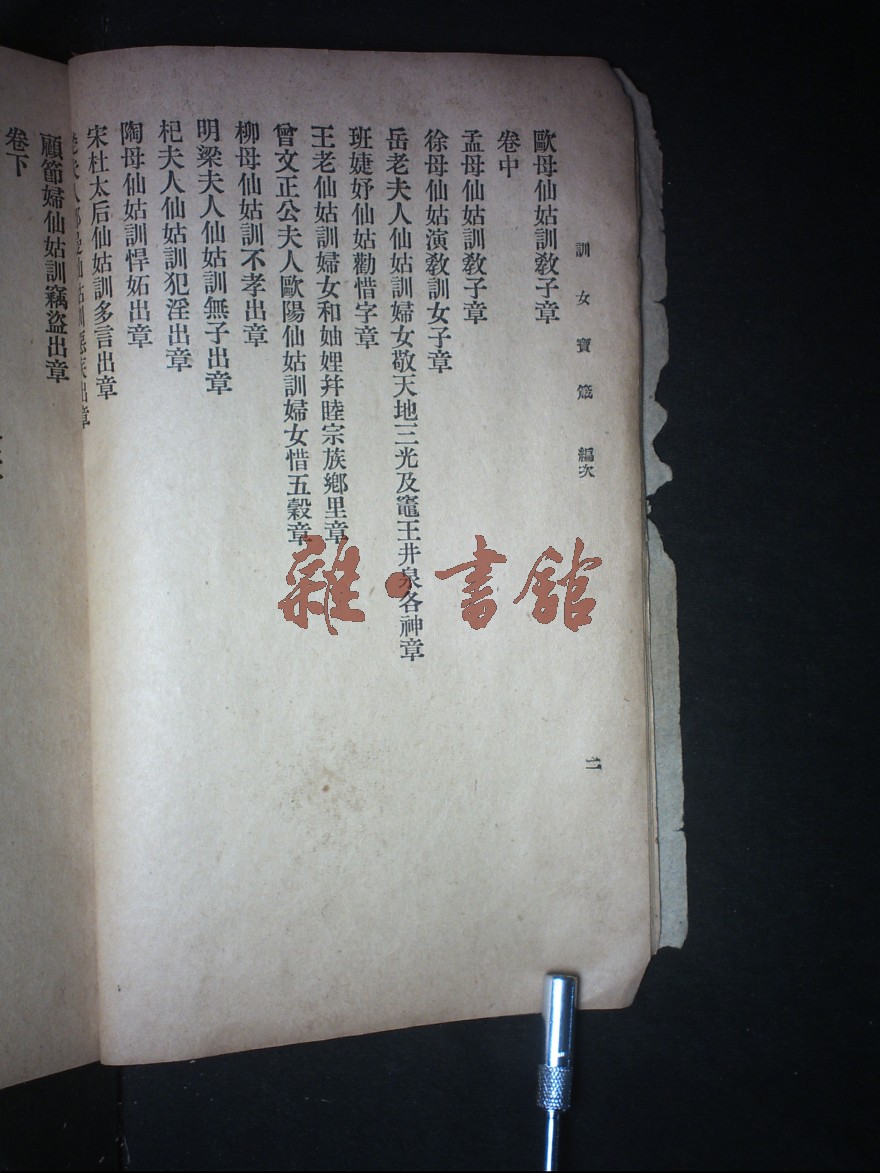 訓女寶箴 編次
二
歐母仙姑訓教子章
卷中
孟母仙姑訓教子章
徐母仙姑演教訓女子章
岳老夫人仙姑訓婦女敬天地三光及竈王井泉各神章
班婕妤仙姑勸惜字章
王老仙姑訓婦女和妯娌幷睦宗族鄉里章
曾文正公夫人歐陽仙姑訓婦女惜五穀章
柳母仙姑訓不孝出章
明梁夫人仙姑訓無子出章
杞夫人仙姑訓犯淫出章
陶母仙姑訓悍妬出章
宋杜太后仙姑訓多言出章
夫人 仙姑訓惡疾出章
顧節婦仙姑訓竊盜出章
卷下
雜·書館